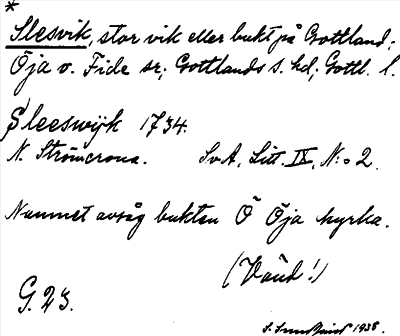 *
Slesvik, stor vik eller bukt på Gottland;
Öja o. Fide sr; Gottlands s. hd; Gottl. l.
Sleeswijk 1734.
N. Strömcrona. SvA, Litt. IX, N:o 2.
Namnet avsåg bukten Ö Öja kyrka.
(Vänd!)
G. 23.
1938.